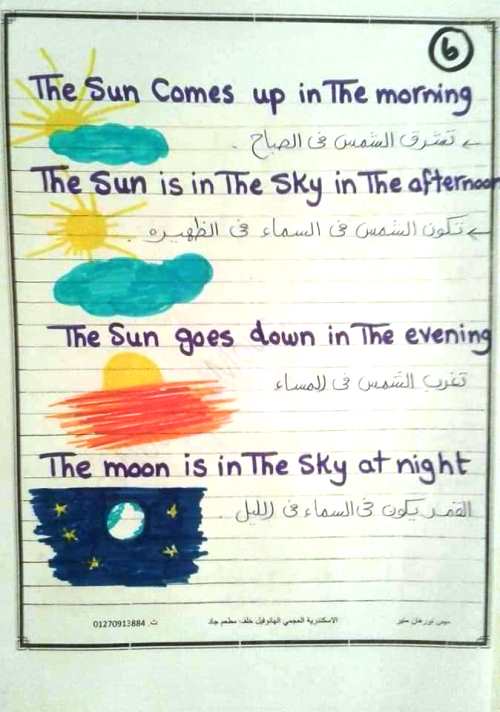 6
The Sun Comes up in The morning
← تشرق الشمس فى الصباح .
The Sun is in The Sky in The afternoon
← تكون الشمس فى السماء فى الظهيره .
The Sun goes down in The evening
تغرب الشمس فى المساء
The moon is in The Sky at night
القمر يكون فى السماء فى الليل .
ميس نورهان منير الاسكندرية العجمي الهانوفيل خلف مطعم جاد ت. 01270913884